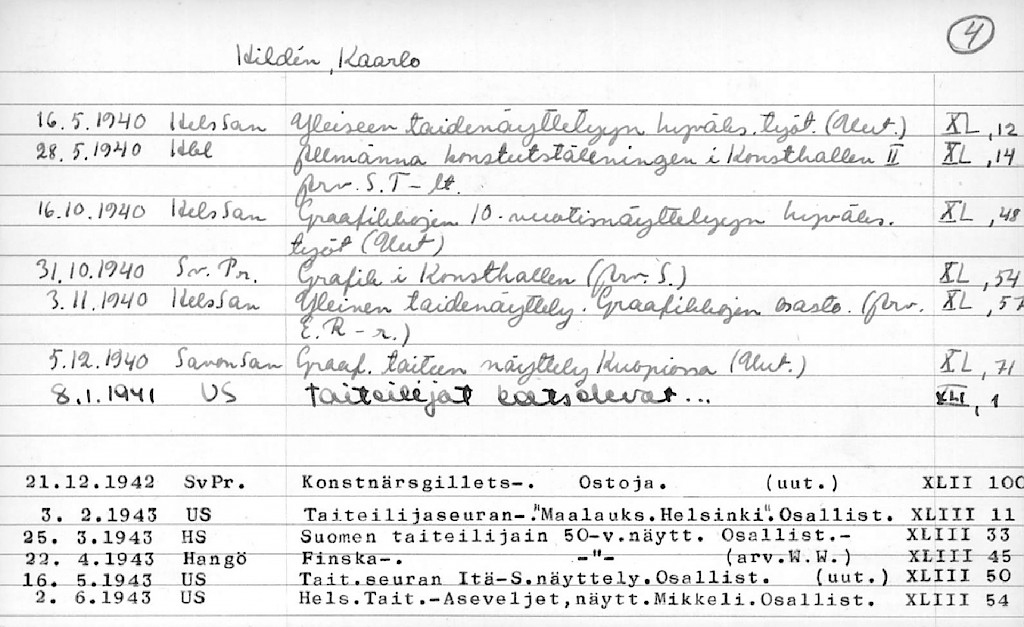 4
Hildén, Kaarlo
16.5.1940 HelsSan Yleiseen taidenäyttelyyn hyväks. työt. (Uut.) XL, 12
28.5.1940 Hbl Allmänna konstutställningen i Konsthallen II XL, 14
Arv. S.T-lt.
16.10.1940 HelsSan Graafikkojen 10-vuotisnäyttelyyn hyväks. XL, 48
työt (Uut)
31.10.1940 Sv. Pr. Grafik i Konsthallen (Arv. S.) XL, 54
3.11.1940 HelsSan Yleinen taidenäyttely. Graafikkojen osasto. (Arv. XL, 57
E.R-r.)
5.12.1940 SavonSan Graaf. taiteen näyttely Kuopiossa (Uut.) XL, 71
8.1.1941 US Taiteilijat katselevat... XLI, 1
21.12.1942 SvPr. Konstnärsgillets-. Ostoja. (uut.) XLII 100
3. 2.1943 US Taiteilijaseuran-."Maalauks.Helsinki".Osallist. XLIII 11
25. 3.1943 HS Suomen taiteilijain 50-v.näytt. Osallist.- XLIII 33
22. 4.1943 Hangö Finska-. -"- (arv.W.W.) XLIII 45
16. 5.1943 US Tait.seuran Itä-S.näyttely.Osallist. (uut.) XLIII 50
2. 6.1943 US Hels.Tait.-Aseveljet,näytt.Mikkeli.Osallist. XLIII 54